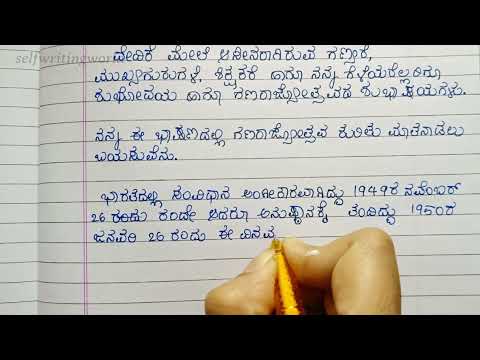 selfwritingworld
ವೇದಿಕೆ ಮೇಲೆ ಆಸೀನರಾಗಿರುವ ಗಣ್ಯರೆ,
ಮುಖ್ಯಗುರುಗಳೆ, ಶಿಕ್ಷಕರೆ ಹಾಗೂ ನನ್ನ ಗೆಳೆಯರೆಲ್ಲರಿಗೂ
ಶುಭೋದಯ ಹಾಗೂ ಗಣರಾಜ್ಯೋತ್ಸವದ ಶುಭಾಷಯಗಳು.
ನನ್ನ ಈ ಭಾಷಣದಲ್ಲಿ ಗಣರಾಜ್ಯೋತ್ಸವ ಕುರಿತು ಮಾತನಾಡಲು
ಬಯಸುವೆನು.
ಭಾರತದಲ್ಲಿ ಸಂವಿಧಾನ ಅಂಗೀಕಾರವಾಗಿದ್ದು 1949ರ ನವೆಂಬರ್
26 ರಂದು ರಂದೇ ಆದರೂ ಅನುಷ್ಠಾನಕ್ಕೆ ತಂದಿದ್ದು 1950ರ
ಜನವರಿ 26 ರಂದು ಈ ದಿನವ